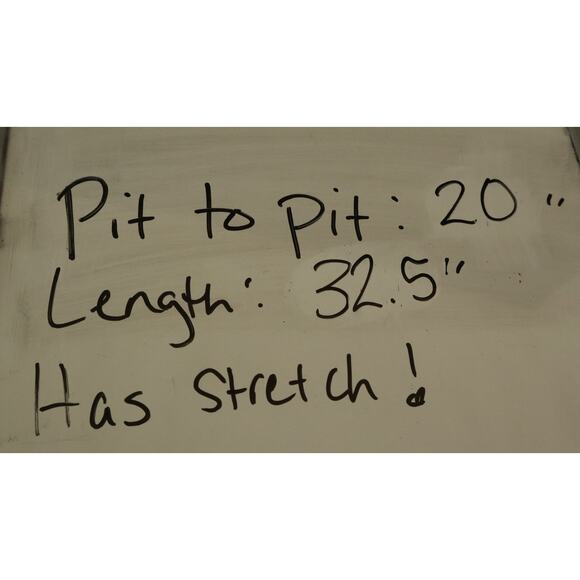 Pit to pit: 20"
Length: 32.5"
Has stretch!